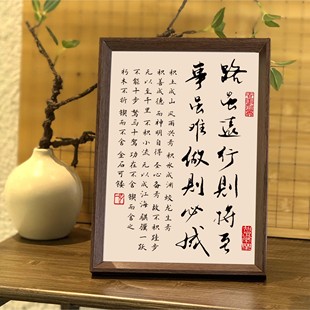 路虽遠行則將至
事虽难做則必成
积土成山 风雨兴焉 积水成渊 蛟龙生焉
积善成德 而神明自得 圣心备焉 故不积跬步
无以至千里 不积小流 无以成江海 骐骥一跃
不能十步 驽马十驾 功在不舍 锲而舍之
朽木不折 锲而不舍 金石可镂